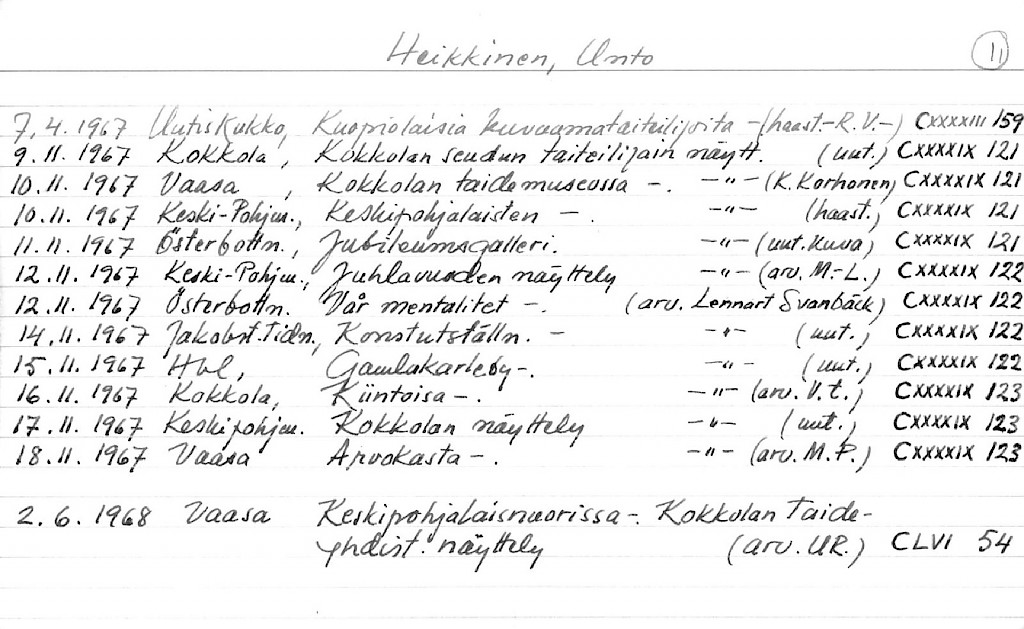 Heikkinen, Unto 11
7.4.1967 Uutiskukko, Kuopiolaisia kuvaamataiteilijoita - (haast.-R.V.-) CXXXXIII 159
9.11.1967 Kokkola, Kokkolan seudun taiteilijain näytt. (uut.) CXXXXIX 121
10.11.1967 Vaasa, Kokkolan taidemuseossa -. -"- (K. Korhonen) CXXXXIX 121
10.11.1967 Keski-Pohjm., Keskipohjalaisten -. -"- (haast.) CXXXXIX 121
11.11.1967 Österbottn., Jubileumsgalleri. -"- (uut.kuva) CXXXXIX 121
12.11.1967 Keski-Pohjm., Juhlavuoden näyttely -"- (arv. M.-L.) CXXXXIX 122
12.11.1967 Österbottn. Vår mentalitet -. (arv. Lennart Svanbäck) CXXXXIX 122
14.11.1967 Jakobst.Tidn., Konstutställn. - -"- (uut.) CXXXXIX 122
15.11.1967 Hbl, Gamlakarleby-. -"- (uut.) CXXXXIX 122
16.11.1967 Kokkola, Kiintoisa -. -"- (arv. V.t.) CXXXXIX 123
17.11.1967 Keskipohjm. Kokkolan näyttely -"- (uut.) CXXXXIX 123
18.11.1967 Vaasa Arvokasta -. -"- (arv. M.P.) CXXXXIX 123
2.6.1968 Vaasa Keskipohjalaisnuorissa -. Kokkolan Taide-
yhdist. näyttely (arv. UR.) CLVI 54